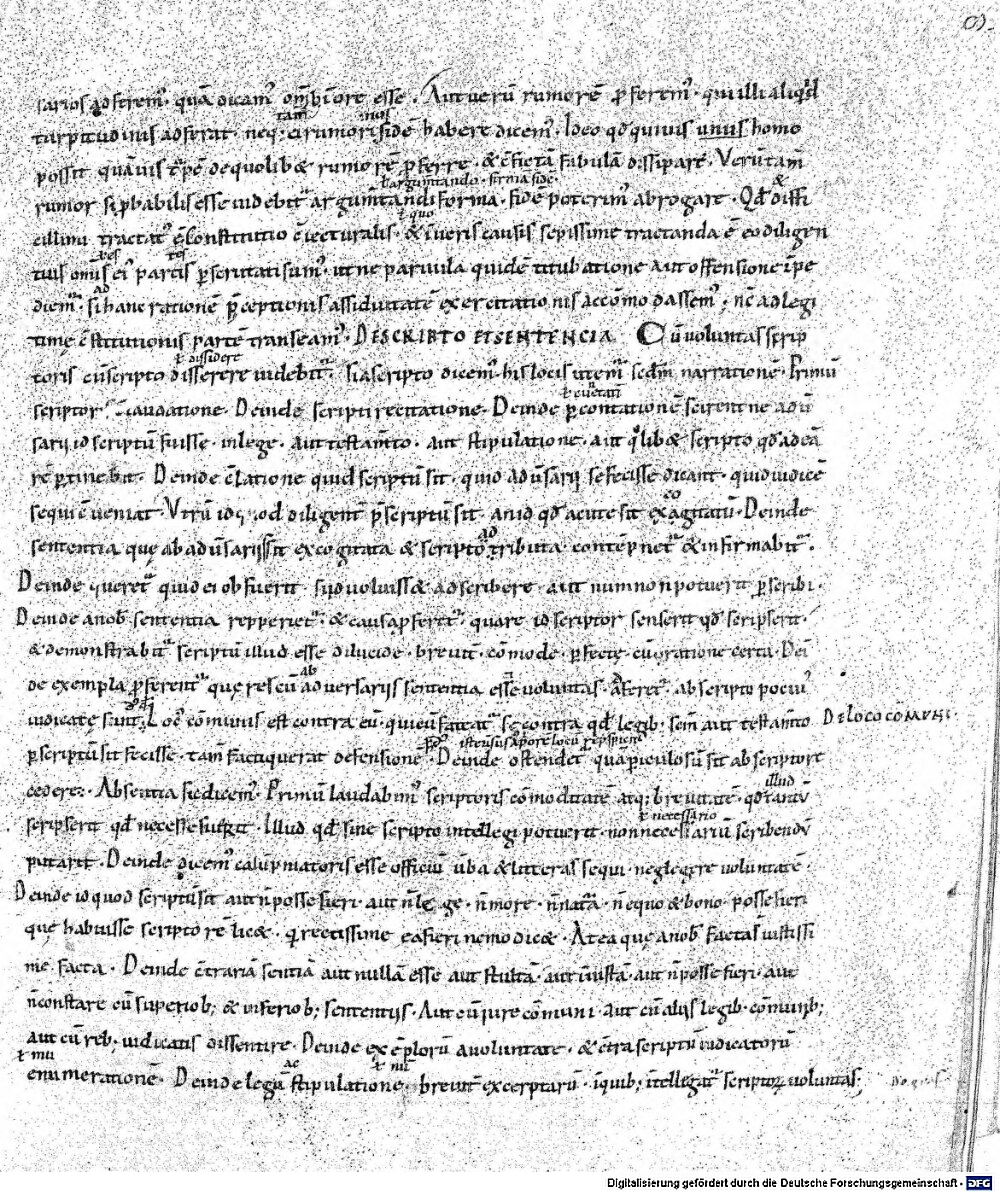 sarios adferem᾽. quā dicam᾽ om̄b; īore esse. Aut uerū rumorē ꝓferem᾽. qui illi aliqd
turpitudinis adferat. neq; ei rumori fidē habere dicem᾽. Ideo qd quiuis unus homo
possit quāuis t᷑pē de quolib& rumorē ꝓferre. & c̄fictā fabulā dissipare. Verū tam̄
rumor si ꝓbabilis esse uidebit᷑ argum̄tandi forma. fidē poterim᾽ abrogare. Qd & diffi
cillimi tractat᾽ ē constitutio c̄iecturalis. & ī ueris causis sepissime tractanda ē eo diligen
tius om̄s ei᾽ partis ꝑscrutati sum᾽. ut ne paruula quidē titubatione aut offensione īpe
diem᷑. si ad hanc rationē p̄ceptionis assiduitatē exercitationis accōmodassem᾽. nc̄ ad legi
timę c̄stitutionis partē transeam᾽. DE SCRIPTO ET SENTENCIA Cū uoluntas scrip
ł dissidere
toris cū scripto disserere uidebit᷑. Si a scripto dicem᾽ his locis utem᷑ sedm̄ narrationē. Primū
scriptor᷑ laudatione. Deinde scripti recitatione. Deinde ꝑcontationē scirent ne adū
sarii id scriptū fuisse in lege. aut testam̄to. aut stipulatione. aut qͥlib& scripto qd ad eā
rē ꝑtinebit. Deinde c̄latione quid scriptū sit. quid adūsarij se fecisse dicant. quid iudicē
sequi c̄ueniat. Vtrū id diligent᷑ p̄scriptū sit. an id qd acute sit excogitatū. Deinde
sententia quę ab adūsarijs sit excogitata & scripto adtributa contēpnet᷑ & infirmabit᷑.
Deinde queret᷑ quid ei obfuerit. si id uoluiss& adscribere. aut num non potuerit ꝑscribi.
Deinde a nob̄ sententia repperiet᷑. & causa ꝓferet᷑. quare id scriptor senserit qd scripserit.
& demonstrabit᷑ scriptū illud esse dilucide. breuit᷑. cōmode. ꝑfecte. cū oratione certa. Dei
de exempla ꝓferent᷑ quę res cū ab adversariis sententia essē uoluntas. afferet᷑. ab scripto poci᾽
iudicate sunt. Loc᾽ cōmunis est contra eū. qui cū fateat᷑ se contra qd legib. sem̄ aut testam̄to DE LOCO COMUNI.
ꝑscriptū sit fecisse. tam̄ facti querat defensionē. Deinde ostendet᷑ quā piculosū sit ab scripto re
cedere. A sententia sic dicem᾽. Primū laudabim᾽ scriptoris cōmoditatē atq; breuitatē. qd tantū illud
ł necessario
scripserit qd necesse fuerit. Illud qd sine scripto intellegi potuerit. non necessariū scribendū
putarit. Deinde dicem᾽ calupniatoris esse officiū ūba & litteras sequi. neglegere uoluntatē.
Deinde id quod scriptū sit aut n̄ posse fieri. aut n̄ lege. n̄ more. n̄ natᵃ. n̄ equo & bono posse fieri
quę habuisse scriptorē lice&. qͣ rectissime ea fieri nemo dic&. At ea que a nob̄ facta s̄ iustissi
me facta. Deinde c̄trariā sentiā aut nullā esse aut stultā. aut iniustā. aut n̄ posse fieri. aut
n̄ constare cū superiob; & inferiob; sententijs. Aut cū iure cōmuni. aut cū alijs legib. cōmunib;
aut cū reb. iudicatis dissentire. Deinde exēplorū a uoluntate. & c̄tra scriptū iudicatorū
enumerationē. Deinde legū ac stipulationē breuit᷑ excerptarū. ī quib; intellegat᷑ scriptoꝝ uoluntas;